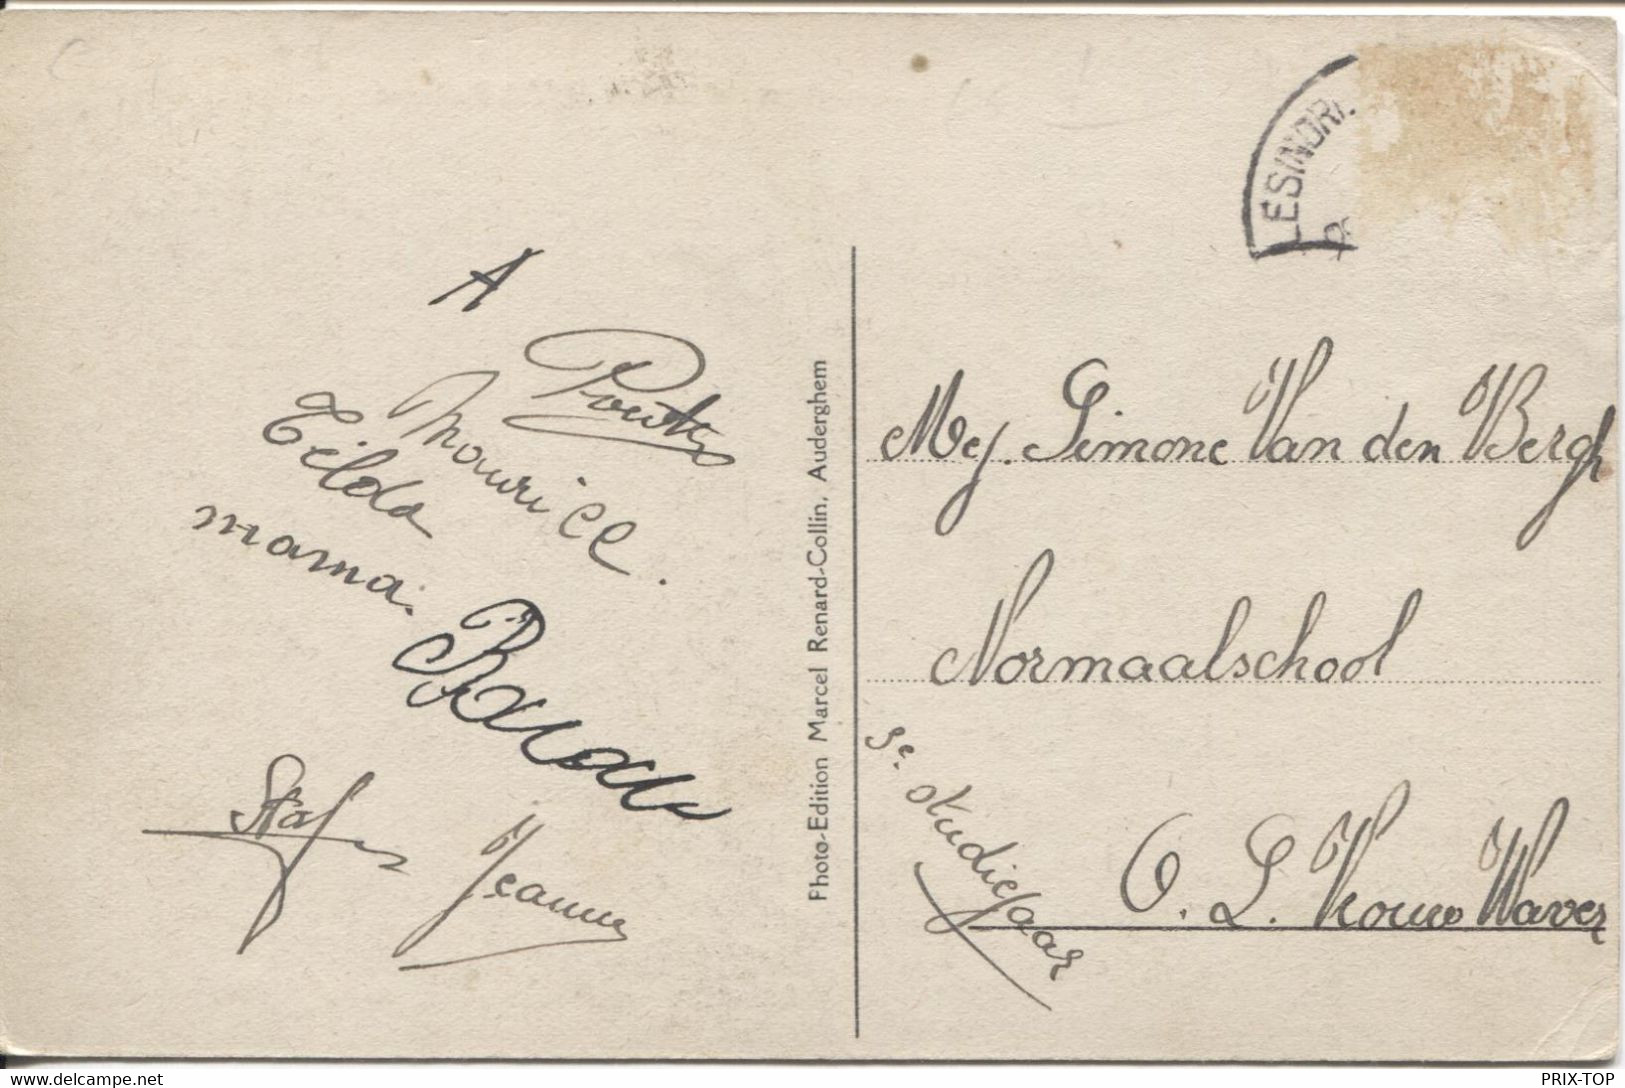 A
Maurice.
Tilda
mama.
Staf
Jeanne
Fhoto-Edition Marcel Renard-Collin, Auderghem
LESINDR
Mej. Simone Van den Bergh
Normaalschool
3e studiejaar
O. L. Vrouw Waver
delcampe.net
PRIX-TOP